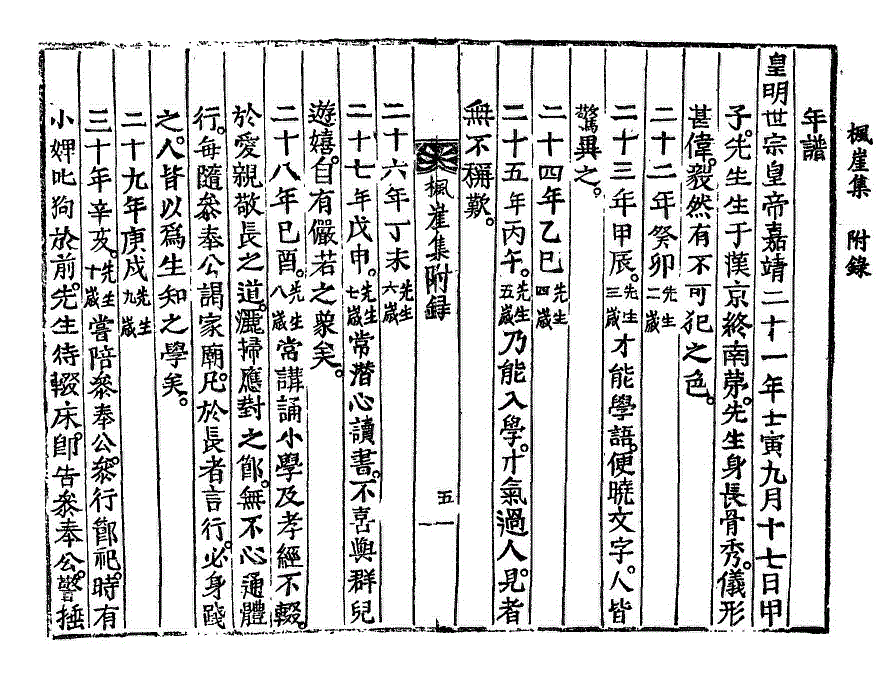 楓崖集 附錄
年譜
皇明世宗皇帝嘉靖二十一年壬寅九月十七日甲
子。先生生于漢京終南茅。先生身長骨秀。儀形
甚偉。毅然有不可犯之色。
二十二年癸卯先生二歲
二十三年甲辰。先生三歲才能學語。便曉文字。人皆
驚異之。
二十四年乙巳先生四歲
二十五年丙午。先生五歲乃能入學。才氣過人。見者
無不稱歎。
楓崖集附録 五
二十六年丁未先生六歲
二十七年戊申。先生七歲常潛心讀書。不喜與群兒
遊嬉。自有儼若之象矣。
二十八年己酉。先生八歲常講誦小學及孝經不輟。
於愛親敬長之道。灑掃應對之節。無不心通體
行。每隨叅奉公謁家廟。凡於長者言行。必身踐
之。人皆以爲生知之學矣。
二十九年庚戌先生九歲
三十年辛亥。先生十歲嘗陪叅奉公。叅行節祀。時有
小婢叱狗於前。先生待輟床。卽告叅奉公。警捶